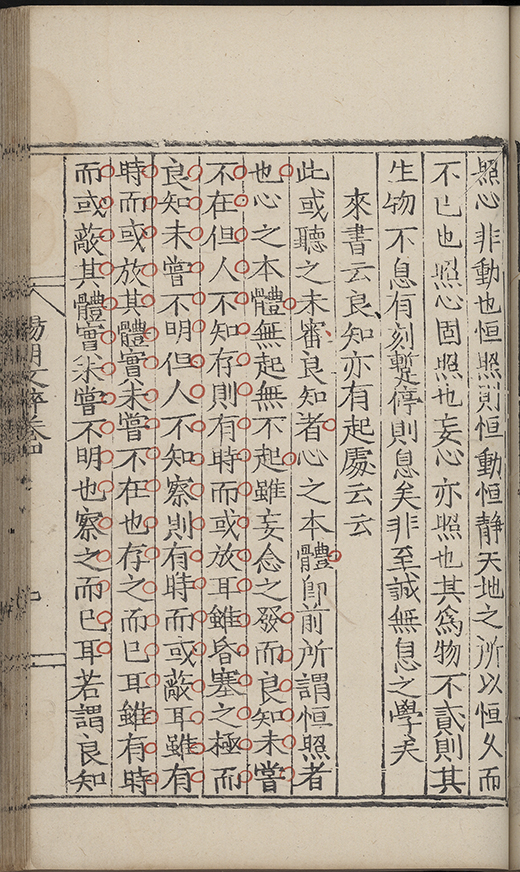 照心非動也恒照則恒動恒靜天地之所以恒久而
不已也照心固照也妄心亦照也其為物不貳則其
生物不息有刻暫停則息矣非至誠無息之學矣
來書云良知亦有起處云云
此或聽之未審良知者心之本體即前所謂恒照者
也心之本體無起無不起雖妄念之發而良知未嘗
不在但人不知存則有時而或放耳雖昏塞之極而
良知未嘗不明但人不知察則有時而或蔽耳雖有
時而或放其體實未嘗不在也存之而已耳雖有時
而或蔽其體實未嘗不明也察之而已耳若謂良知
陽明文粹卷四